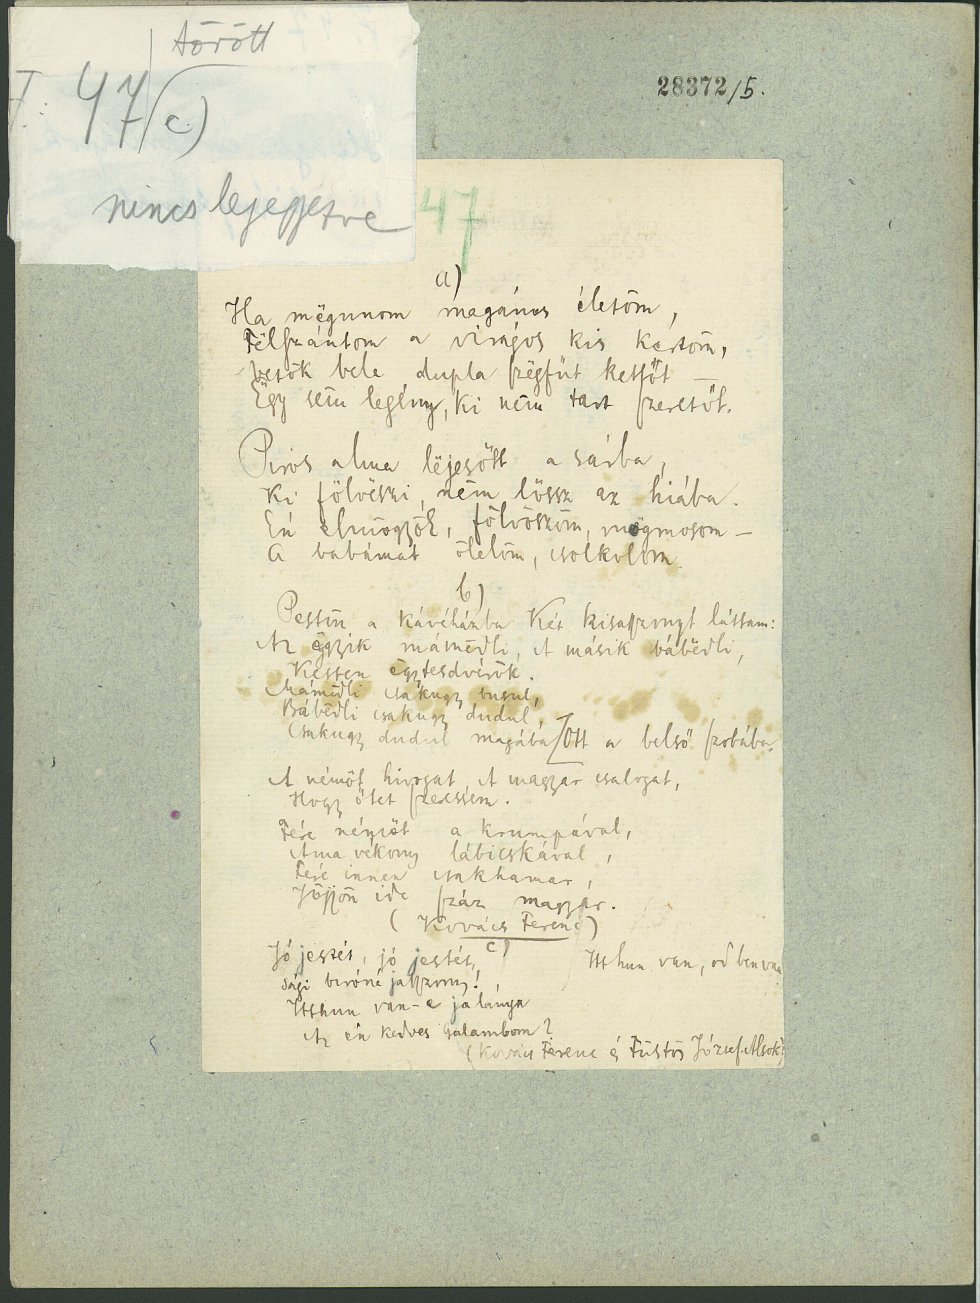 törött
F. 47/c)
nincs lejegyezve
28372/5.
47
a)
Ha mëgunom magános életöm,
Fëlszántom a virágos kis kertöm,
Vetök bele dupla szëgfűt kettőt —
Ëgy sëm legény, ki nëm tart szeretőt.
Piros alma lëjesött a sárba,
Ki fölvëszi, nëm lössz az hiába.
Én elmögyök, fölvöszöm, mögmosom —
A babámat ölelöm, csolkolom.
b)
Pestön a kávéházba Két kisasszonyt láttam:
Az ëgyik mámëdli, A másik bábëdli,
Ketten ëgytesdvérök.
Mámëdli csakugy busul,
Bábëdli csakugy dudul,
Csakugy dudul magába Ott a belső szobába.
A németh hivogat, A magyar csalogat,
Hogy őtet szeressem.
Fére németh a krumpával,
Ama vékony lábicskával,
Fére innen csakhamar,
Jöjjön ide száz magyar.
(Kovács Ferenc)
c)
Jó jestét, jó jestét, Itthun van, od ben van
sági biróné jasszony!
Itthun van-e ja lánya
Az én kedves galambom?
(Kovács Ferenc és Füstös József. Alsok.)